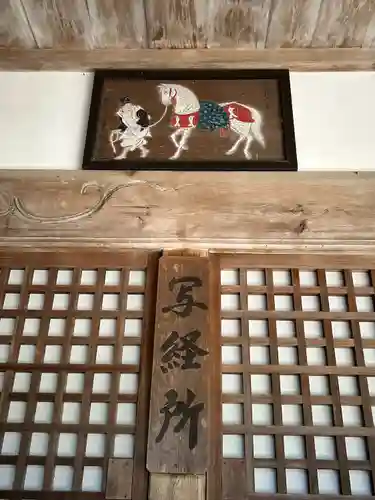 写経所